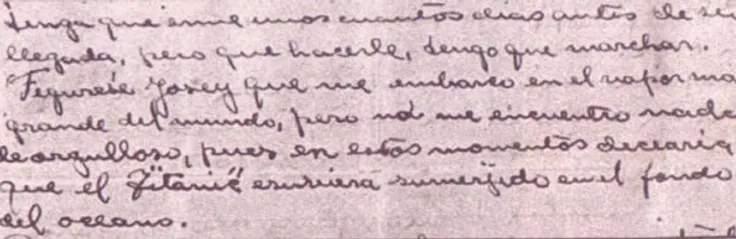 tenga que irme unos cuantos dias antes de su
llegada, pero que hacerle, tengo que marchar.
"Figurese Josey que me embarco en el vapor ma
grande del mundo, pero no me encuentro nada
de orgulloso, pues en estos momentos decearia
que el "Titanic" estuviera sumerjido en el fondo
del oceano.